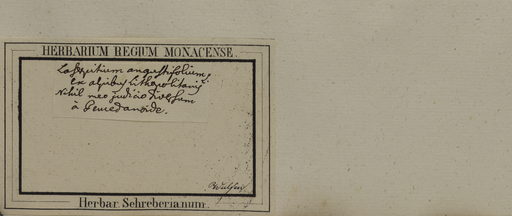 HERBARIUM REGIUM MONACENSE.
Laserpitium angustifolium,
ex alpibus lithopolitanis
Nihil meo judicio diversum
à Peucedanoide.
Wulfen
Herbar. Schreberianum.